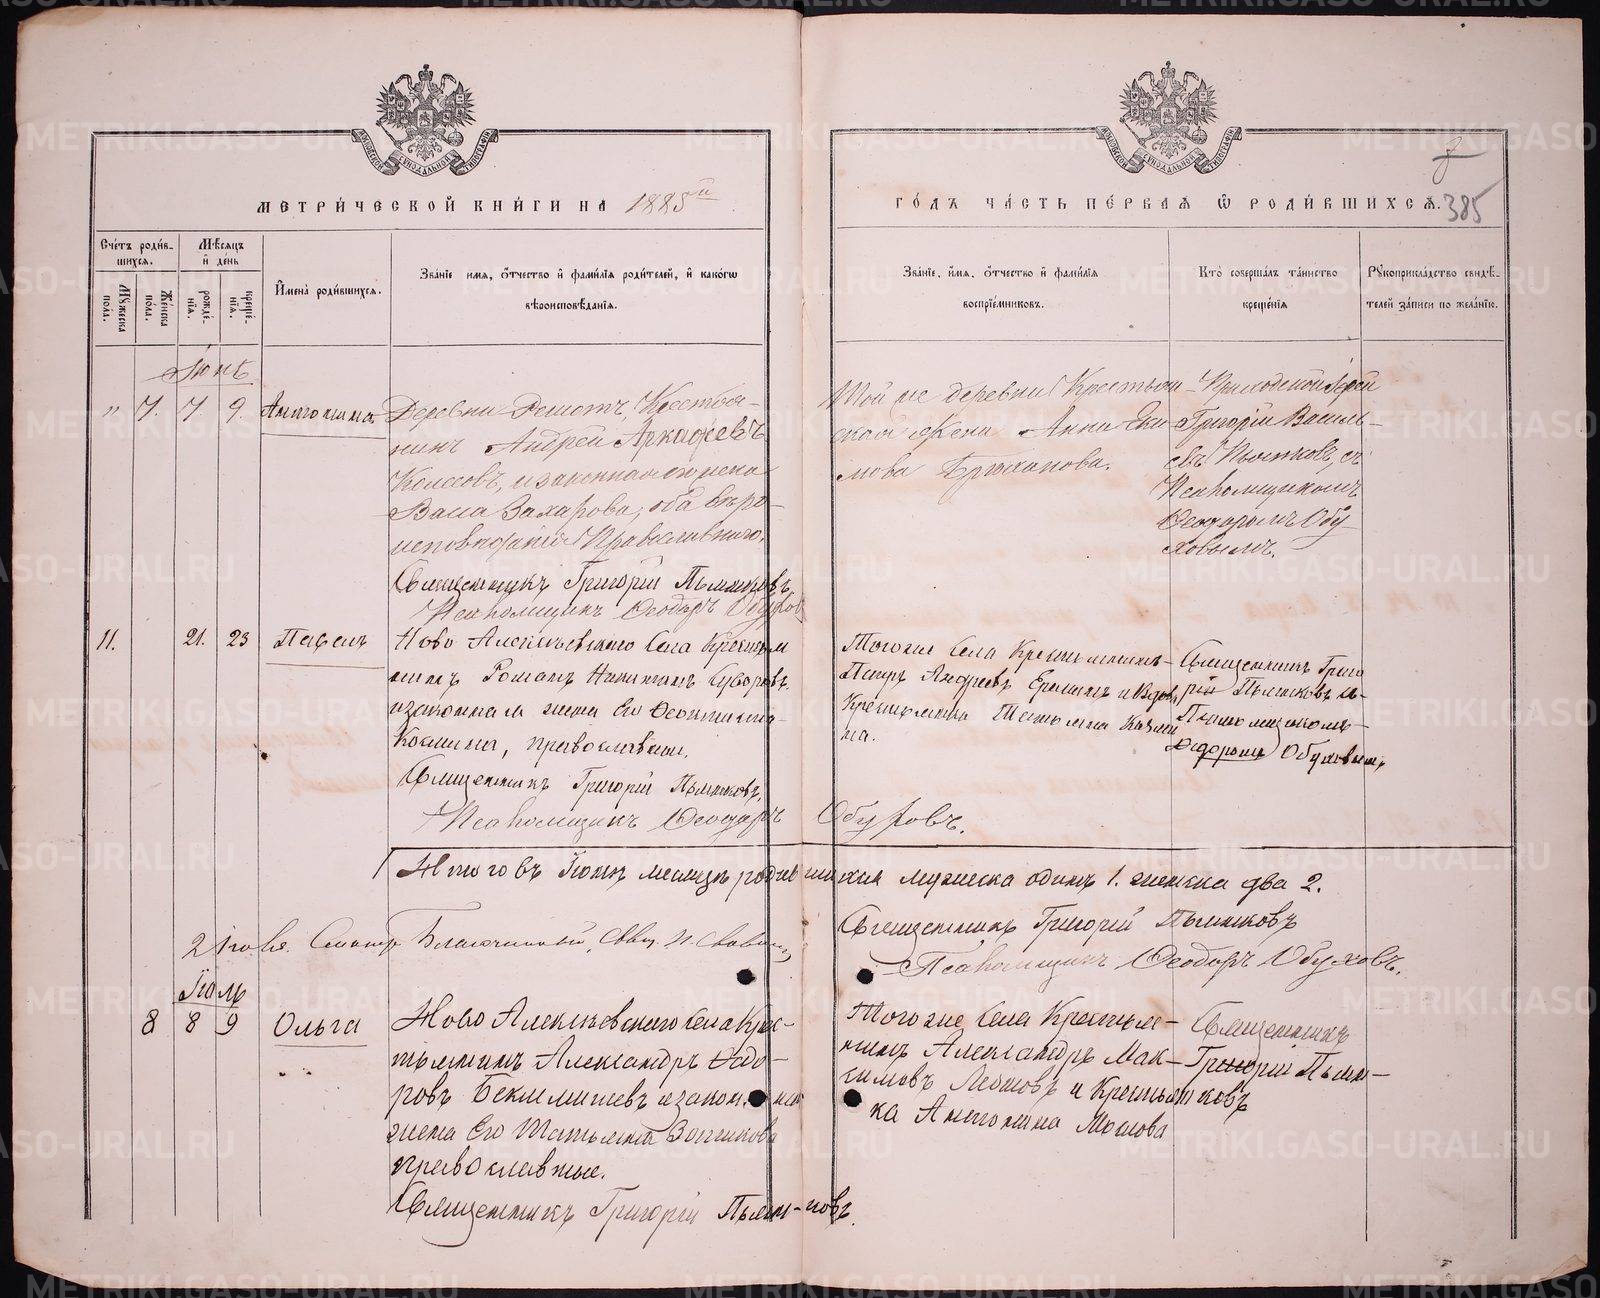 МЕТРИ́ЧЕСКОЙ КНИ́ГИ НА 1885й
ГО́ДЪ ЧА́СТЬ ПЕ́РВАЯ Ѡ РОДИ́ВШИХСЯ.
385
Сче́тъ роди́в-
шихся.
Мѣ́сяцъ
и де́нь
Мꙋ́жеска
по́ла.
Же́нска
по́ла.
рожде́-
нїя.
креще́-
нїя.
Имена̀ роди́вшихся.
Зва́нїе имя, о́тчество и фами́лїя роди́телей, и како́гѡ
вѣроисповѣ́данїя.
Зва́нїе, имя, о́тчество и фами́лїя
воспрїе́мниковъ.
Кто̀ соверша́лъ та́инство
креще́нїя
Рꙋкоприкла́дство свидѣ́-
телей за́писи по жела́нїю.
Іюнь
" 7. 7. 9. Антонина
Деревни Крестья-
нинъ Андрей
и законная его жена
Захарова, оба вѣро-
исповѣданія Православнаго.
Священникъ Григорій Пьянковъ
Псаломщикъ Ѳеодоръ Обуховъ
Той же деревни Крестьян-
ская Жена Анна Еки-
мова
Приходской Іерей
Григорій Василь-
евъ Пьянковъ, съ
Псаломщикомъ
Ѳеодоромъ Обу
ховымъ.
11. 21. 23 Павелъ
Ново Алексѣевскаго Села Крестьян
нинъ Романъ Никитинъ Суворовъ
и законная жена Его Ѳеоктиста
Космина, православныи.
Священникъ Григорій Пьянковъ,
Псаломщикъ Ѳеодоръ Обуховъ.
Тогоже Села Крестьянинъ
Петръ Андреевъ и Вдова
Крестьянка Татьяна Казми
на.
Священникъ Григо
рій Пьянковъ и
Псаломщикомъ
Ѳедоромъ Обуховымъ,
Итого въ Іюнѣ мѣсяцѣ родившихся мужеска одинъ 1. женска два 2.
Священникъ Григорій Пьянковъ
Псаломщикъ Ѳеодоръ Обуховъ.
Благочинный, Свящ.
Іюль
8 8 9 Ольга
Ново Алексѣевскаго села Крес-
тьянинъ Александръ Ѳедо-
ровъ Беклемишевъ и законная
жена Его Татьяна
православные.
Священникъ Григорій Пьянковъ
Тогоже Села Крестья-
нинъ Александръ Мак-
симовъ и Крестьян
ка Антонина
Священникъ
Григорій Пьян-
ковъ
METRIKI.GASO-URAL.RU